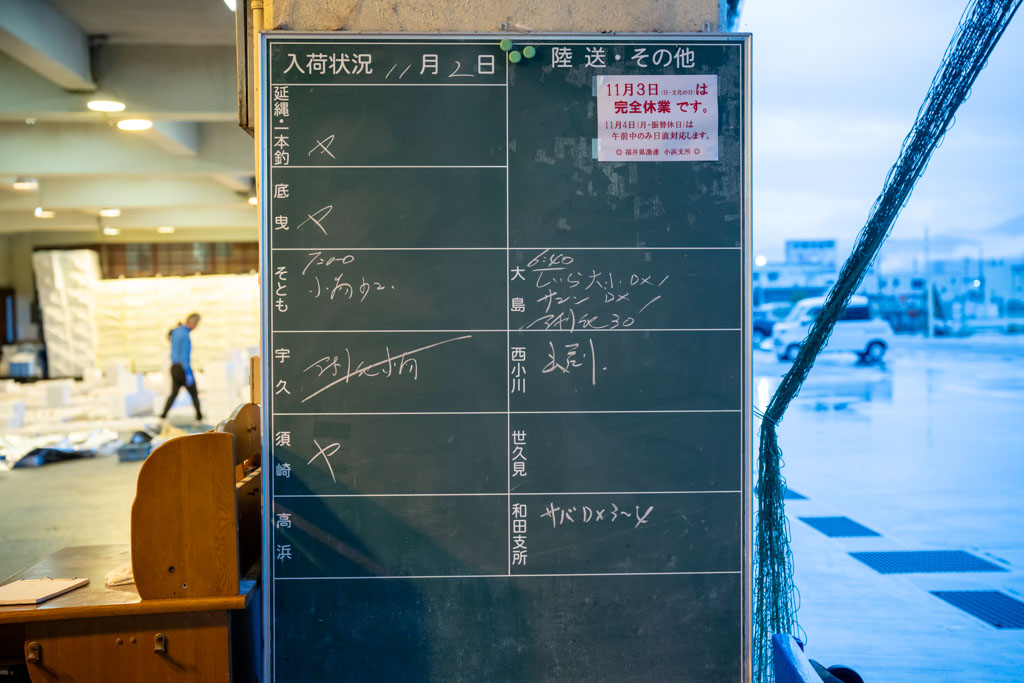 入荷状況 11月2日
延縄・一本釣
ヤ
底曳
ヤ
そとも
7:00
宇久
須崎
ヤ
高浜
陸送・その他
11月3日(日・文化の日)は
完全休業です。
11月4日(月・振替休日)は
午前中のみ日直対応します。
◎ 福井県漁連 小浜支所 ◎
大島
6:40
しいら大小 DX1
サゴシ DX 1
30
西小川
世久見
和田支所
サバDX3〜4